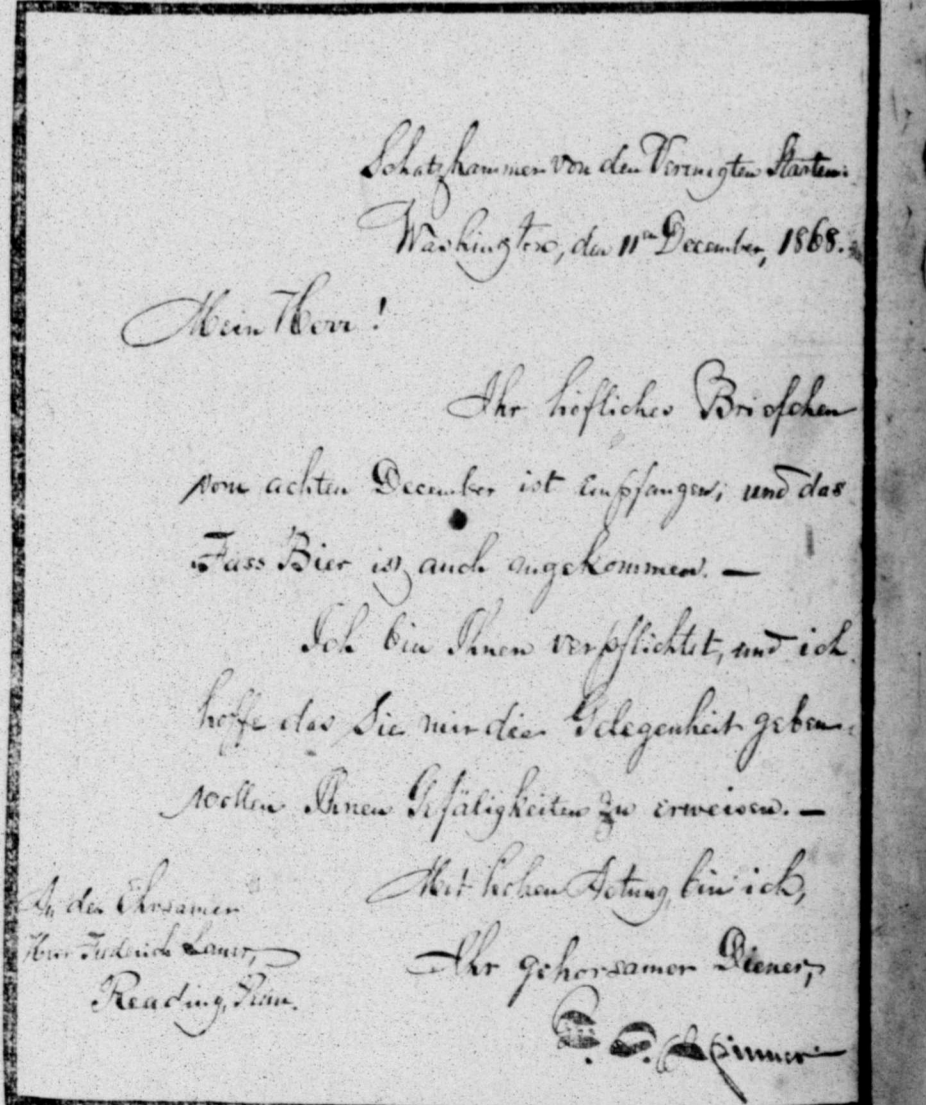 Schatzkammer von den Vereinigten Staaten.
Washington, den 11ten December, 1868.
Mein Herr!
Ihr höfliches Briefchen
vom achten December ist empfangen; und das
Fass Bier ist auch angekommen. —
Ich bin Ihnen verpflichtet, und ich
hoffe das Sie mir die Gelegenheit geben
wollen Ihnen Gefäligkeiten zu erweisen. —
Mit hohen Actung, bin ich,
Ihr gehorsamer Diener,
An den Ehrsamen
Herr Frederick Lauer,
Reading, Penn.
Spinner